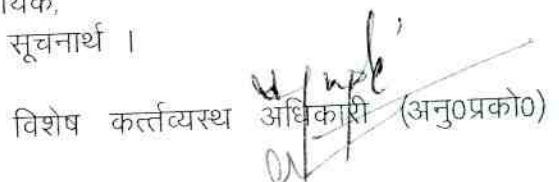 सूचनार्थ ।
विशेष कर्त्तव्यस्थ अधिकारी (अनु०प्रको०)